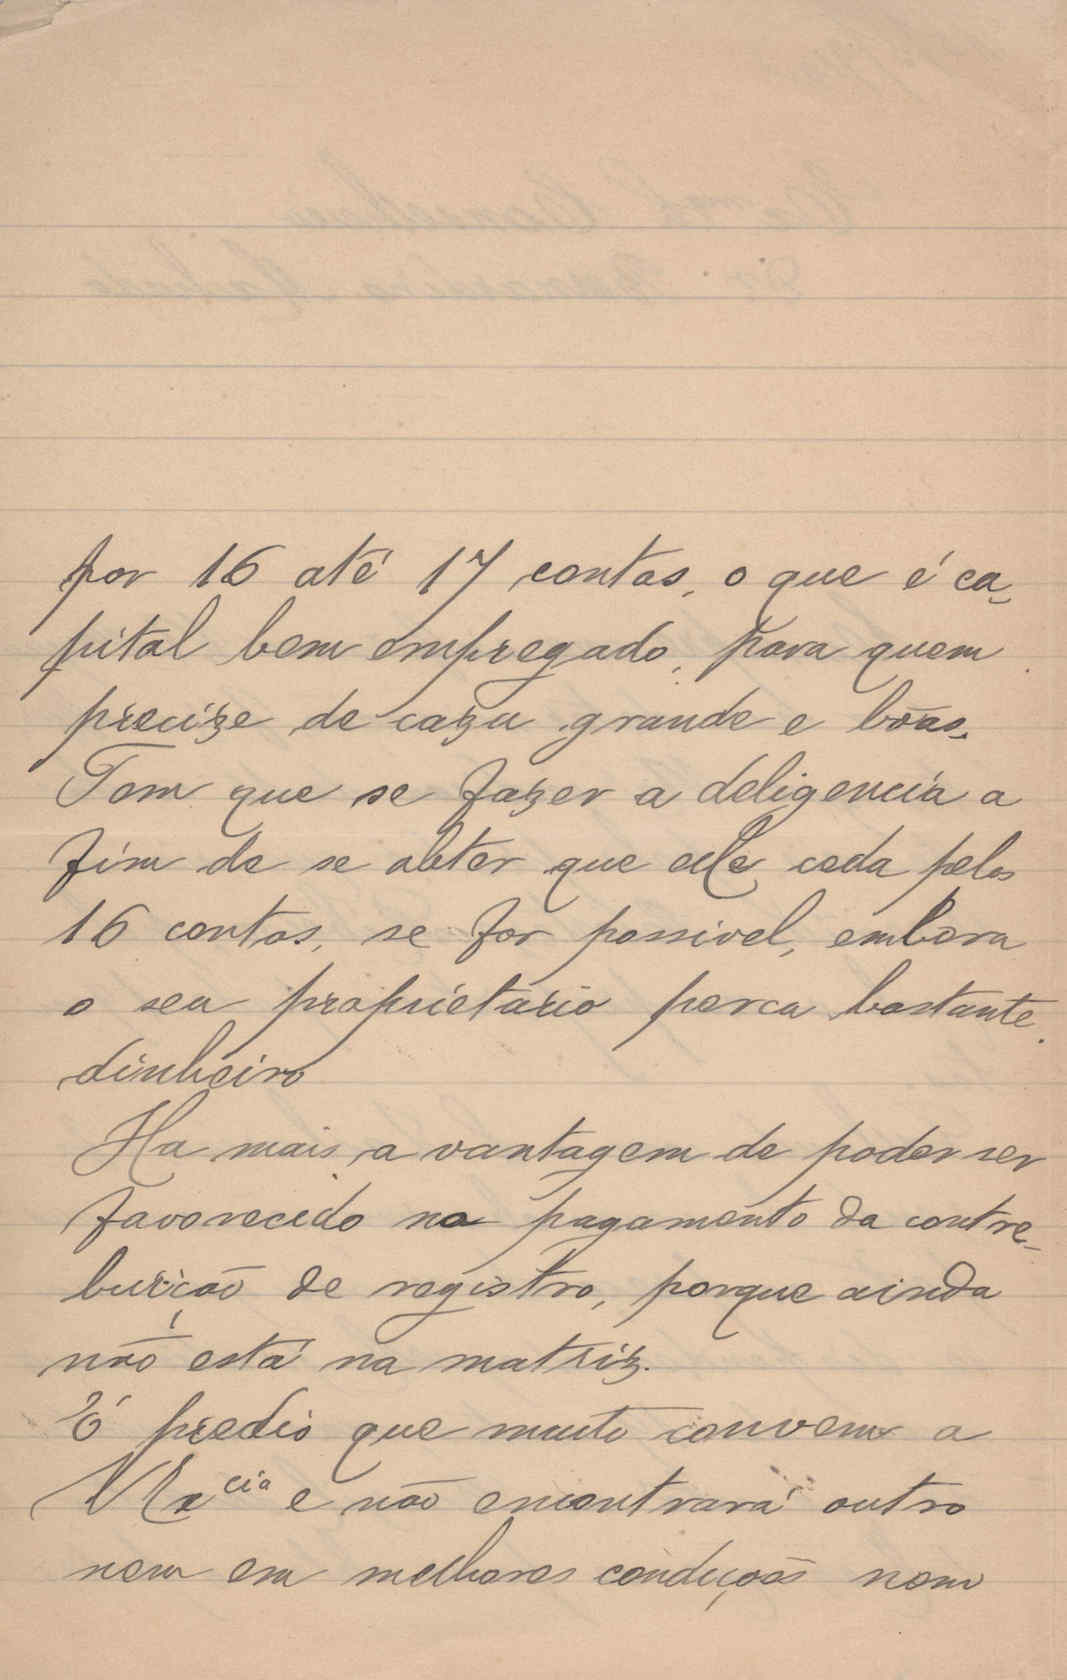 por 16 até 17 contos, o que é ca-
pital bem empregado, para quem
precize de caza grande e bôas.
Tem que se fazer a deligencia a
fim de se obter que elle ceda pelos
16 contos, se for possivel, embora
o seu proprietario perca bastante
dinheiro
Ha mais a vantagem de poder ser
favorecido no pagamento da contre-
buição de registro, porque ainda
não está na matriz.
É predio que muito convem a
V Excia e não encontrará outro
nem em melhores condições nem